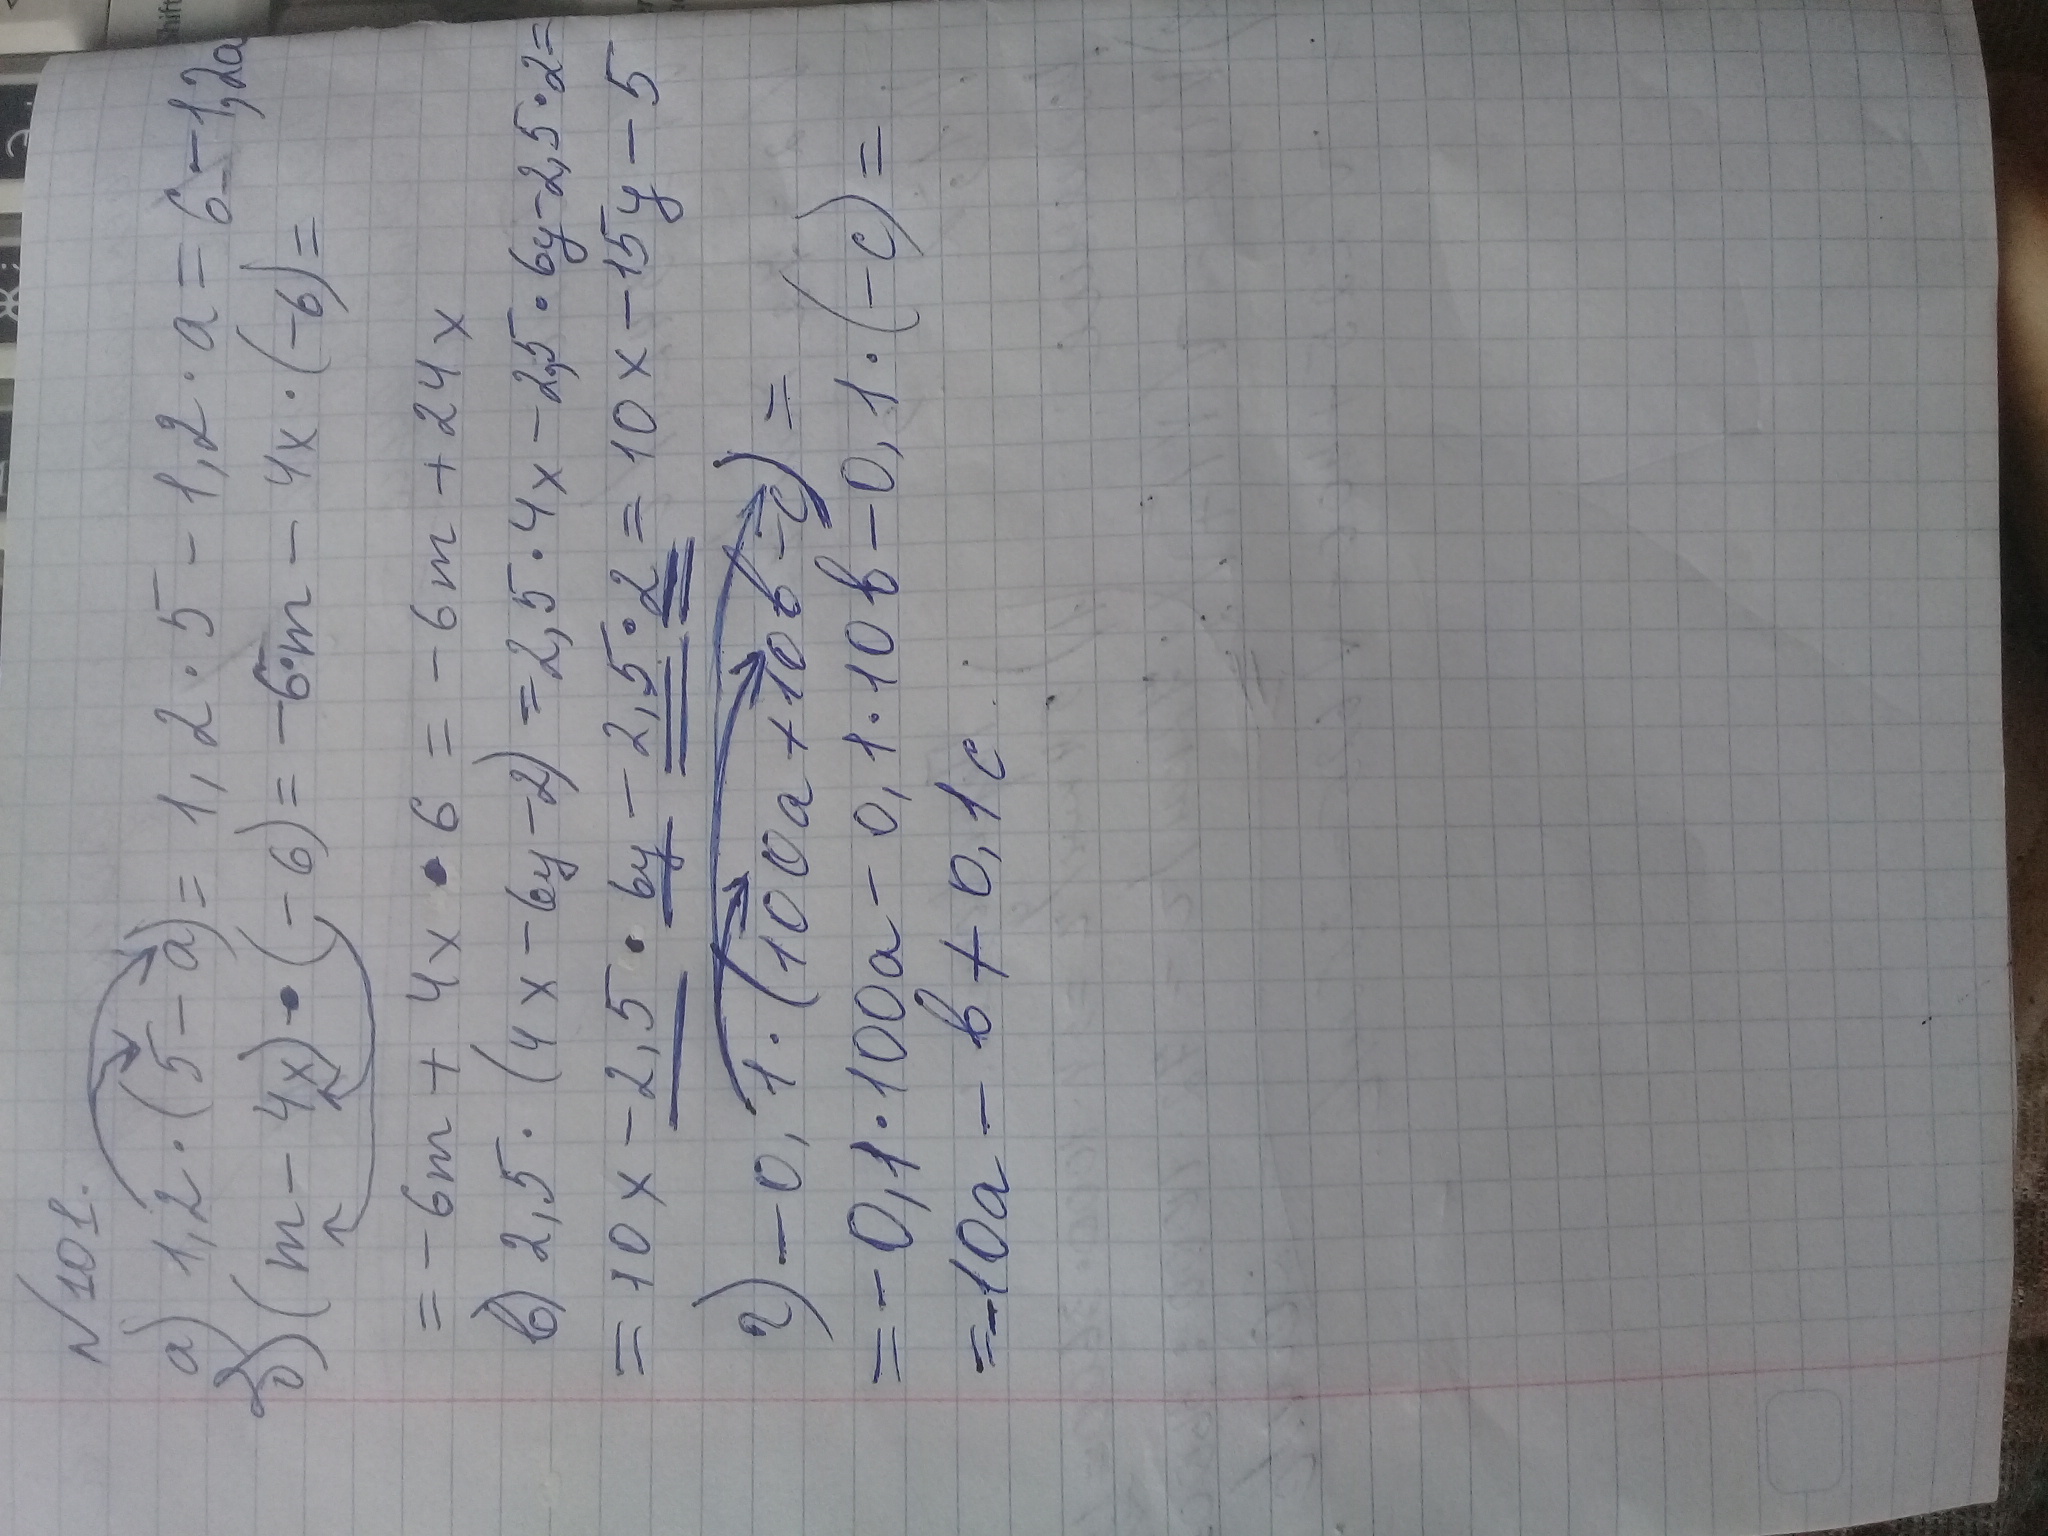 N101.
а) 1,2·(5-а)=1,2·5-1,2·а=6-1,2а
б) (m-4x)·(-6)=-6·m-4x·(-6)=
=-6m+4x·6=-6m+24x
в) 2,5·(4x-6y-2)=2,5·4x-2,5·6y-2,5·2=
=10x-2,5·6y-2,5·2=10x-15y-5
г) -0,1·(100a+10b-c)=
=-0,1·100a-0,1·10b-0,1·(-c)=
=-10a-b+0,1c